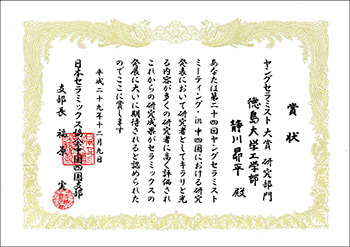 賞状
ヤングセラミスト大賞 研究部門
徳島大学工学部
静川昴平 殿
あなたは第二十四回ヤングセラミスト
ミーティング・in中四国における研究
発表において研究者としてキラリと光
る内容が多くの研究者に高く評価され
これからの研究成果がセラミックスの
発展に大いに期待されると認められた
のでここに賞します
平成二十九年十二月九日
日本セラミックス協会中国四国支部
支部長 福